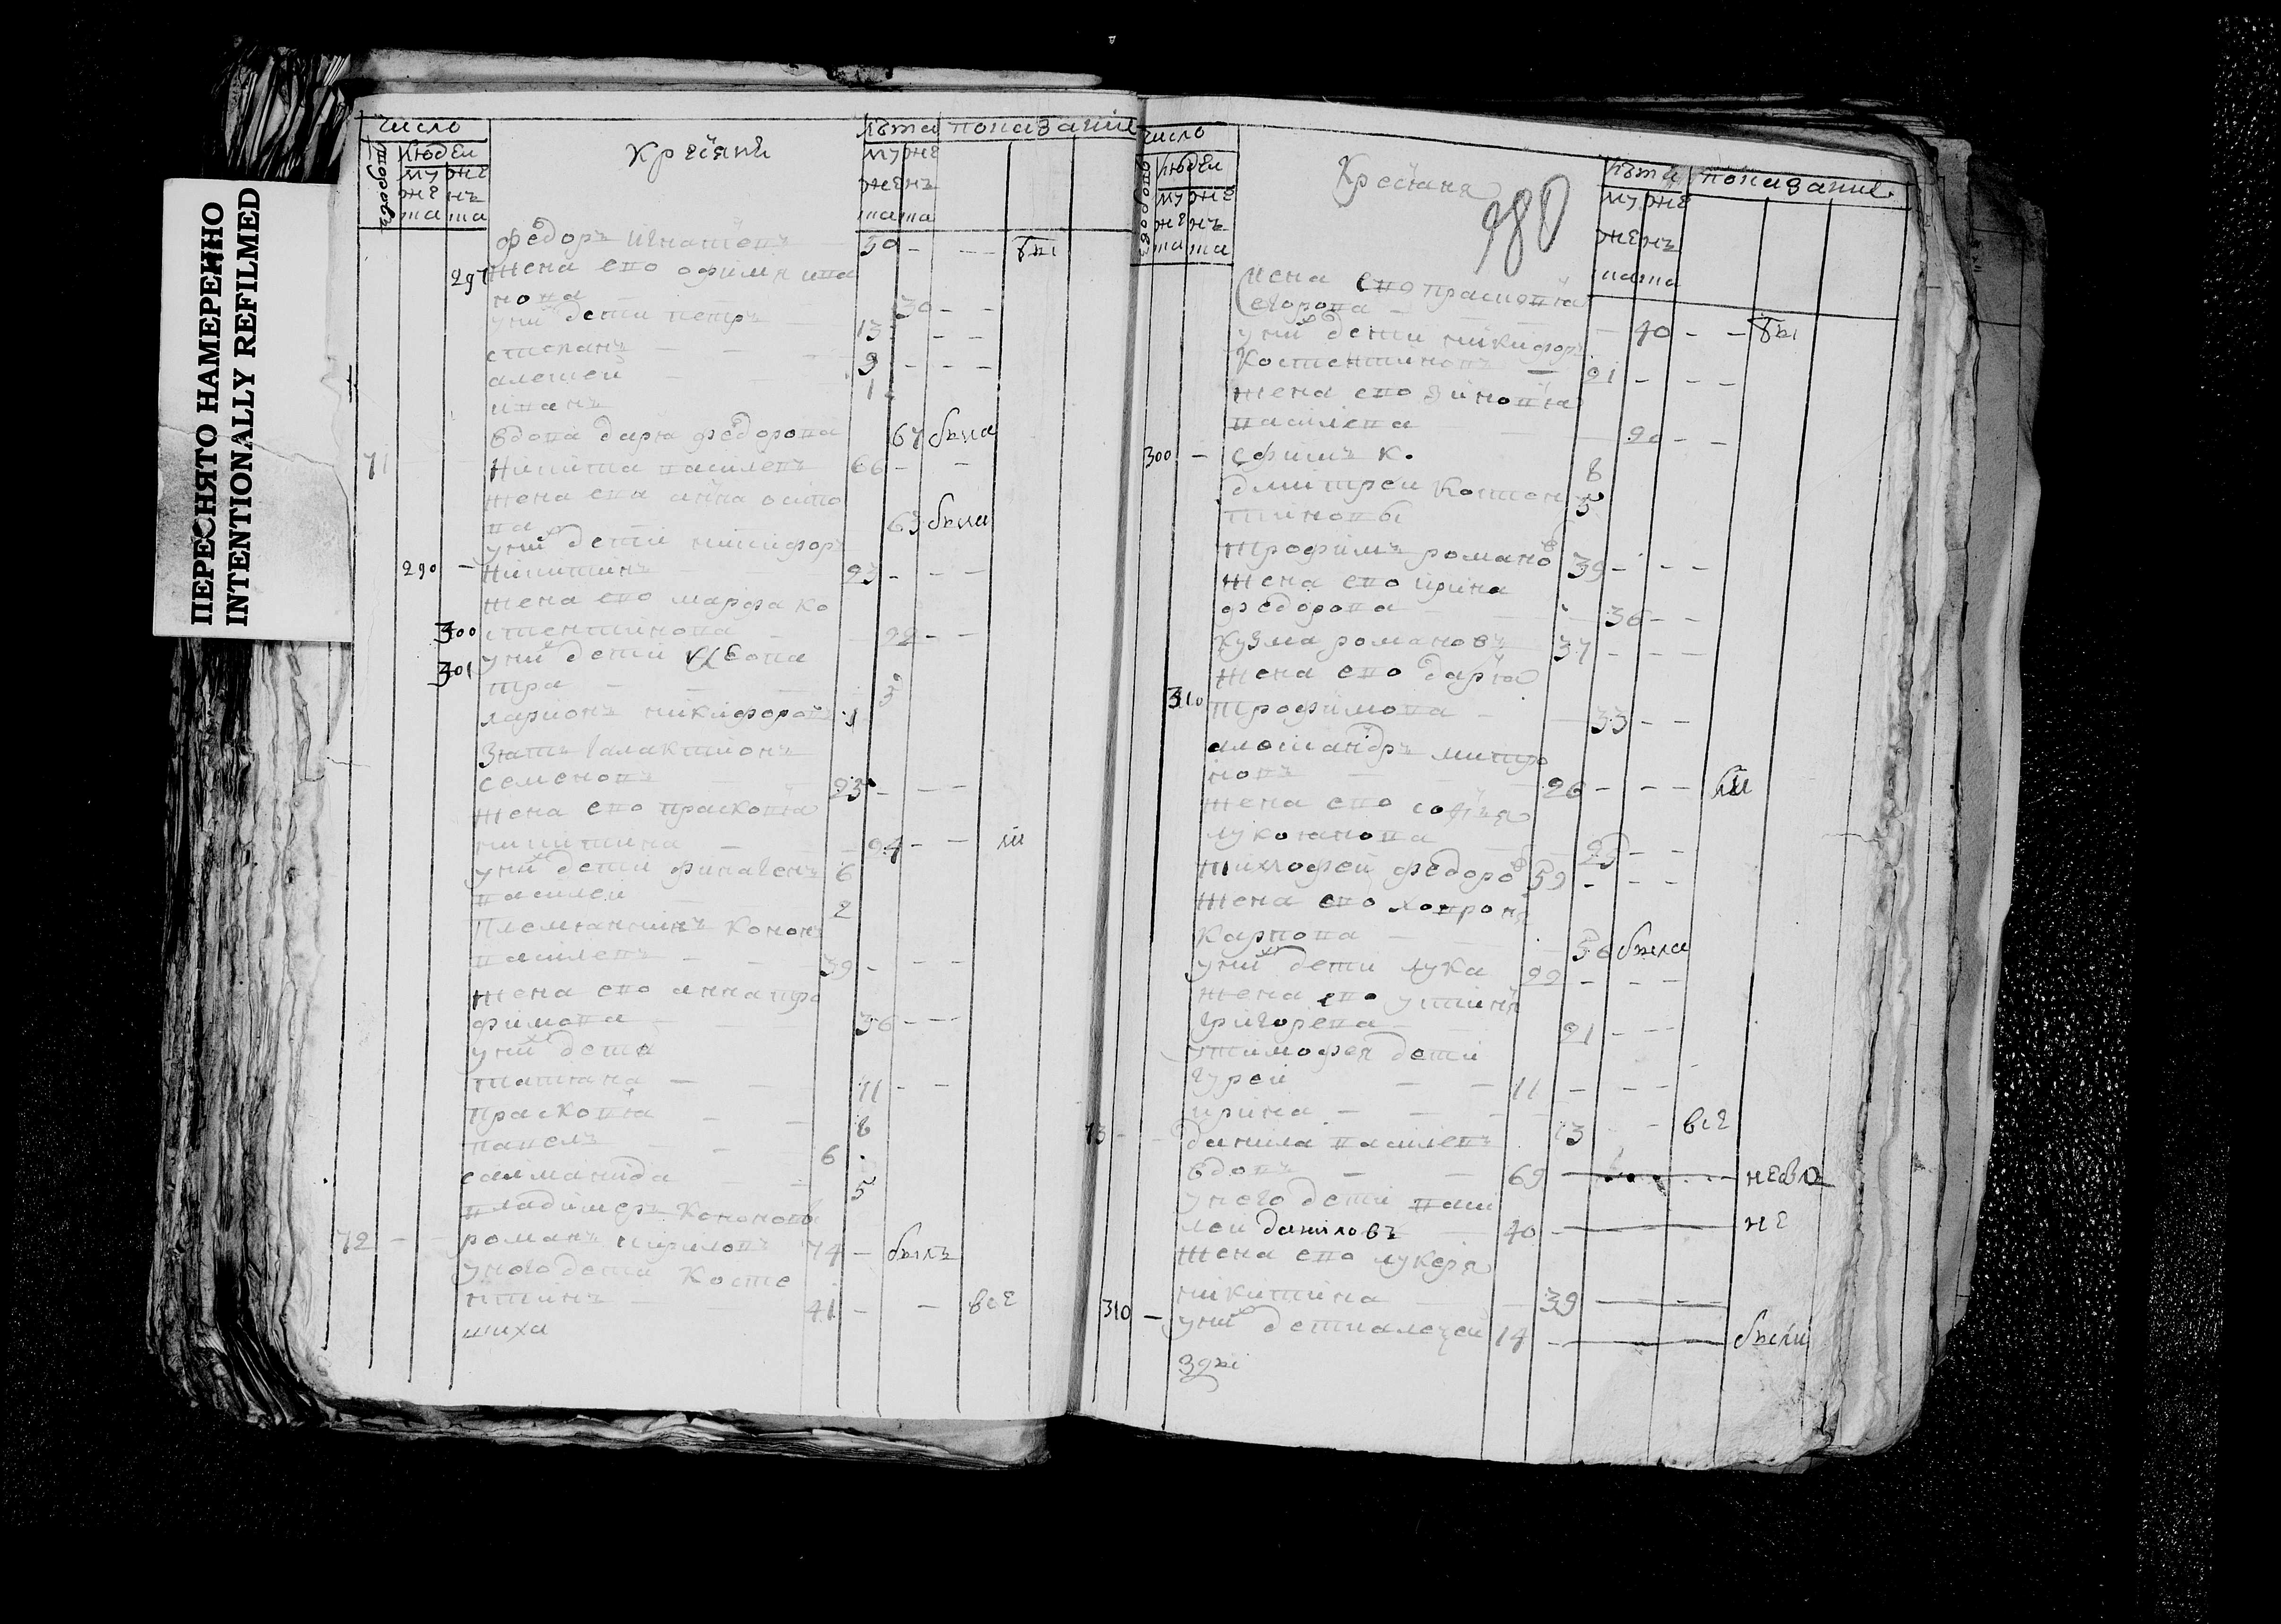 ПЕРЕСНЯТО НАМЕРЕННО
INTENTIONALLY REFILMED
число
людеи
муже женъ
ша ша
Крестяне
лѣта
показание
муже
женъ
ша ша
федоръ игнатевъ 50 - - бы
297 жена ево офимя ива
нова 30 - -
у них дети петръ 13 - -
степанъ 9 - - -
алексеи 1
иванъ
вдова даря федорова 67 была
71 Никита василевъ 66 - -
жена ево анна осипо
ва 63 была
у них дети никифоръ
290 - Никитинъ 23 - - -
жена ево марфа ко
300 стентинова 22 - -
301 у них дети клеопа
тра - - 3
ларионъ никифоровъ 1
Зять галактионъ
семеновъ 25 - - -
жена ево прасковя
никитина - 24 - - ли
у них дети финагенъ 6
василеи 2
Племянникъ Кононъ
василевъ - - 39 - - -
жена ево анна тро
фимова 36 - - -
у них дети
татяна - - 11 - -
Прасковя - - 8
павелъ - 6
саламанида - - 5
владимеръ Кононовъ
72 - - романъ кириловъ 74 - былъ
у него дети Косте
нтинъ - 41 - - все
шиха
число
людеи
муже женъ
ша ша
Крестяня
380
лѣта
показание
муже
женъ
ша ша
жена ево прасковя
егорова - 40 - - бы
у них дети никифоръ
Костентиновъ - 21 - - -
жена ево зиновя
василева - 20 - -
300 - ефимъ к. 8
дмитреи Костен 5
тиновы
трофимъ романов 39 - - -
жена ево ирина
федорова - 36 - -
кузма романовъ 37 - - -
жена ево даря
310 трофимова - 33 - -
александръ митро
новъ 26 - - - ли
жена ево софья
лукоянова 25 - -
тимофеи федоров 59 - - -
жена ево ховрония
Карпова - 56 была
у них дети лука 22 - - -
жена ево устиня
григорева 21 - - -
у тимофея дети
гуреи - - 11 - - -
ирина - - 13 - - все
73 - - данила василевъ
вдовъ - - 69 - - - небы
у него дети васи
леи даниловъ 40 - - - не
жена ево лукеря
никитина 39 - - -
310 - у них дети алексеи 14 - - - были